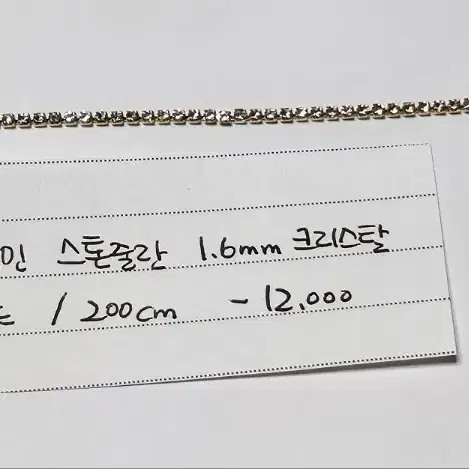 인 스톤줄란 1.6mm 크리스탈
/ 200cm - 12.000